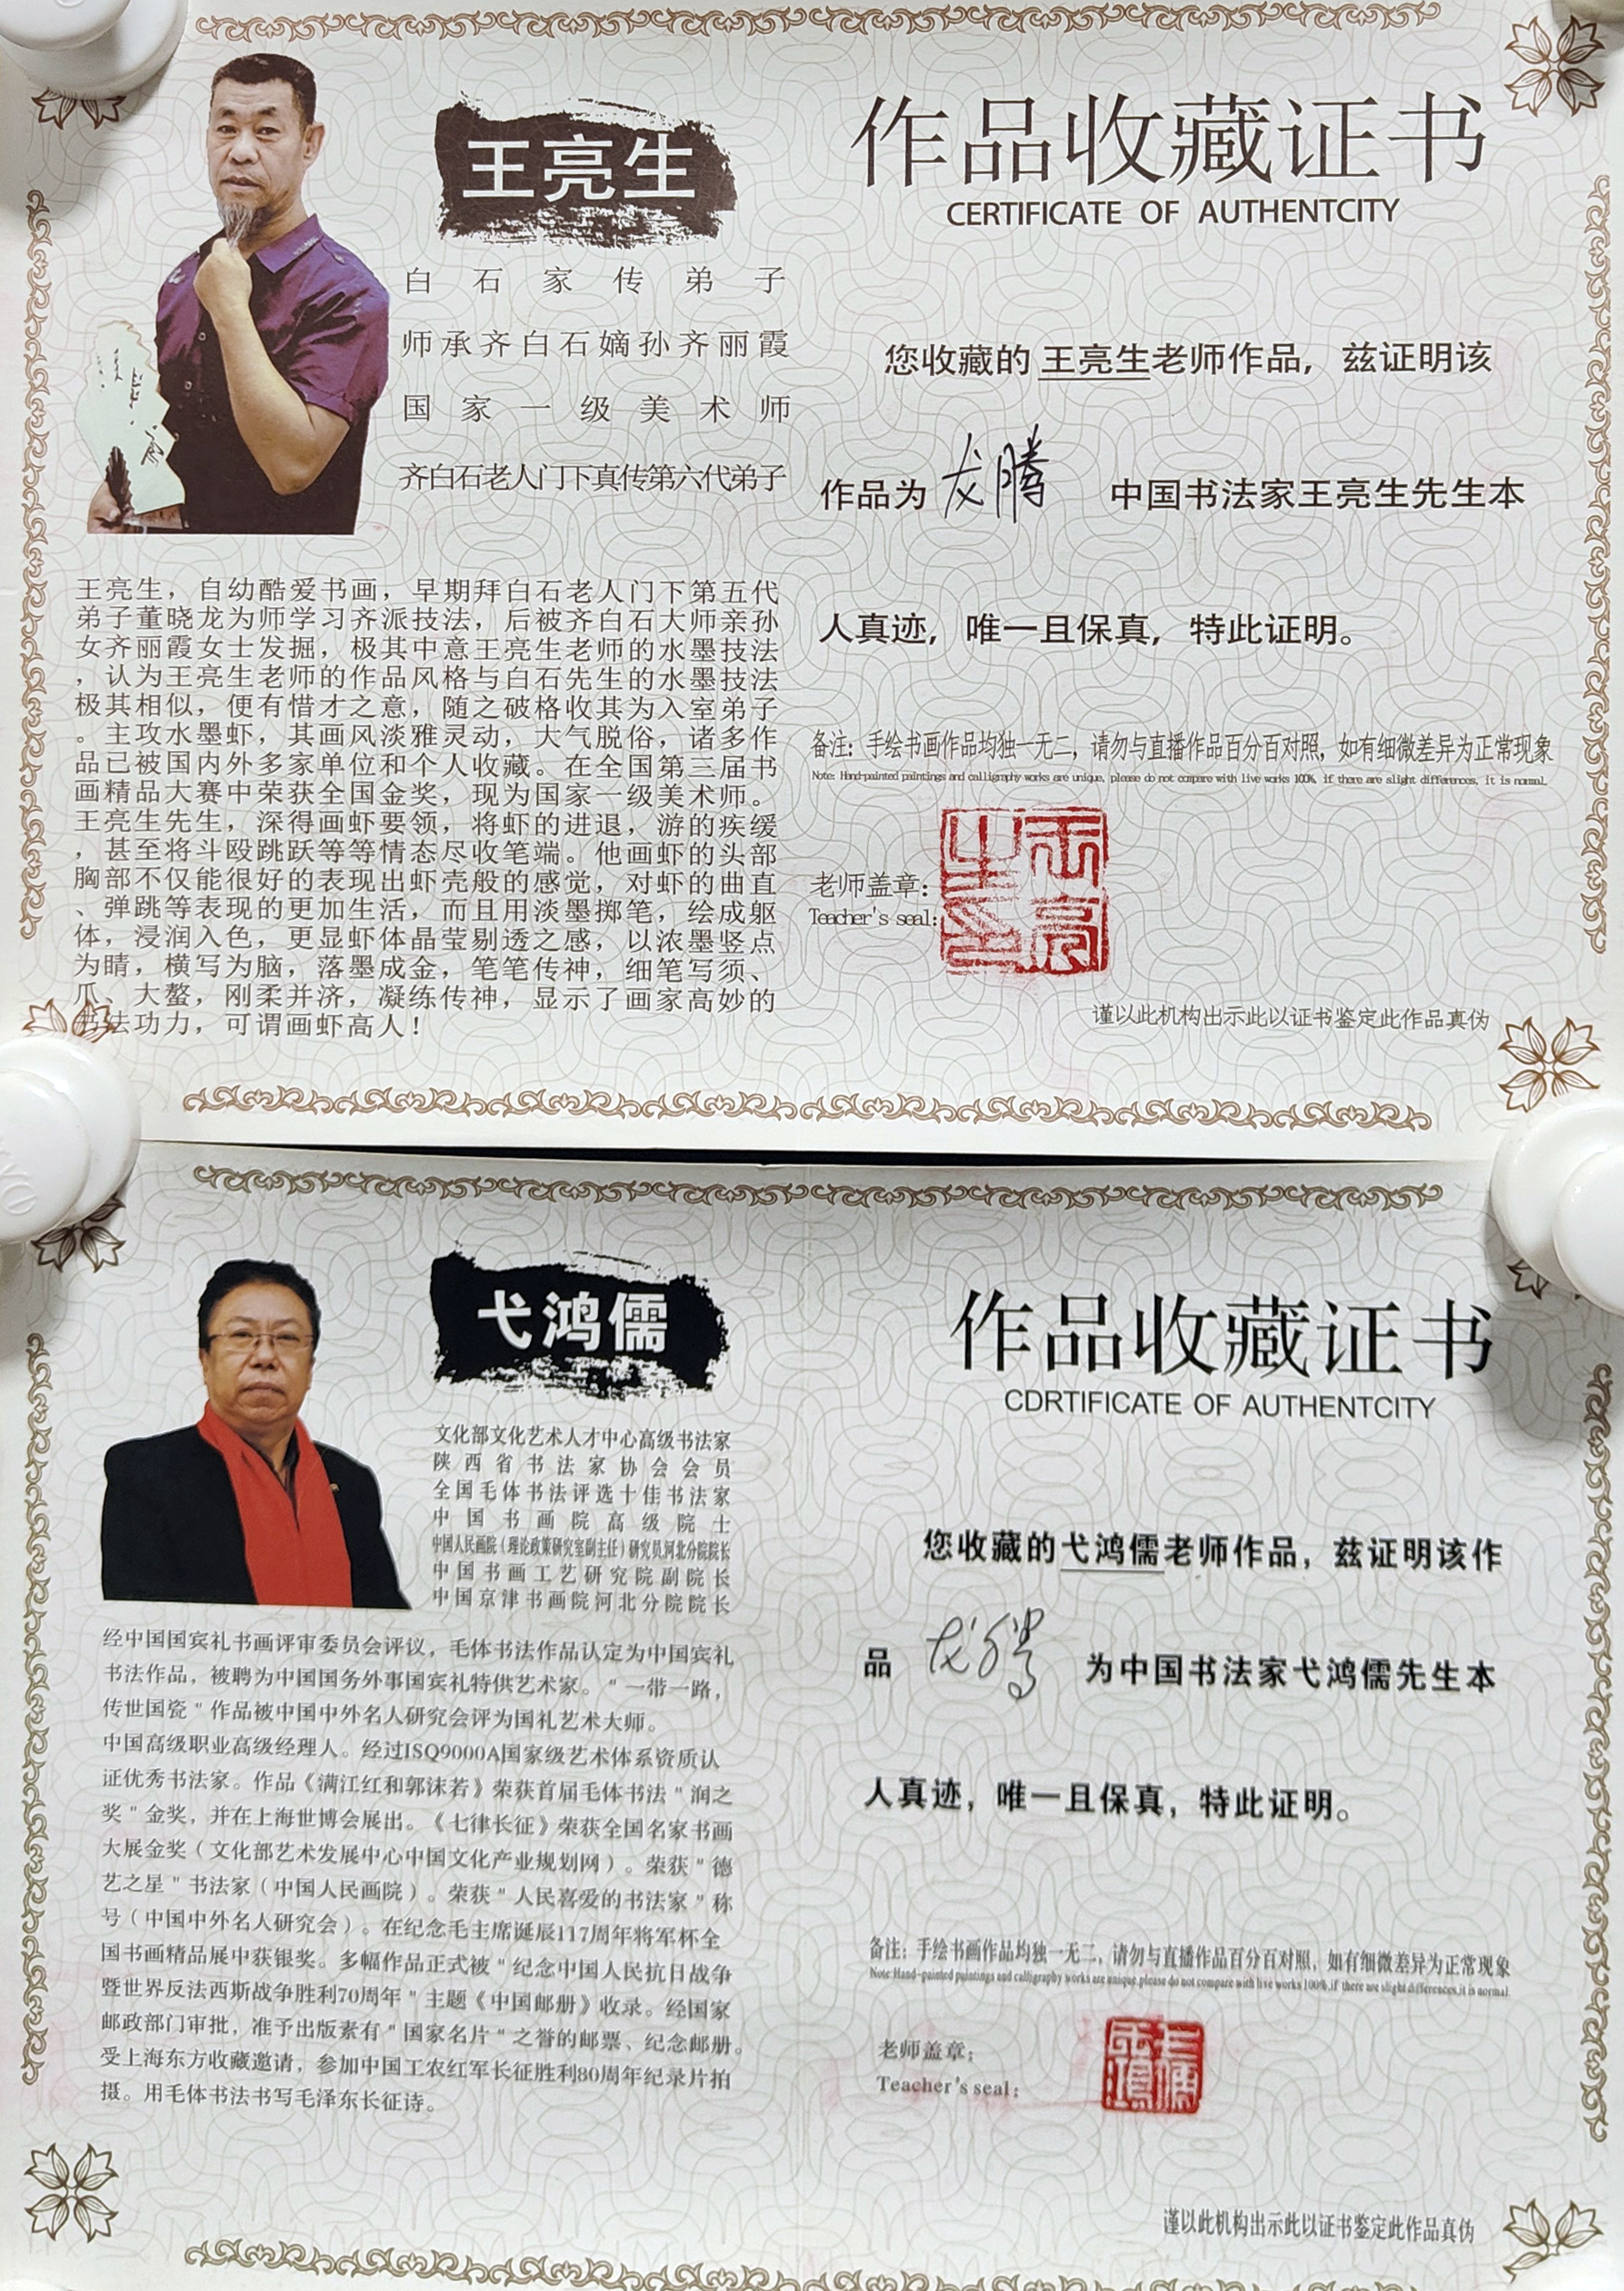 王亮生
白石家传弟子
师承齐白石嫡孙齐丽霞
国家一级美术师
齐白石老人门下真传第六代弟子
王亮生，自幼酷爱书画，早期拜白石老人门下第五代
弟子董晓龙为师学习齐派技法，后被齐白石大师亲孙
女齐丽霞女士发掘，极其中意王亮生老师的水墨技法
，认为王亮生老师的作品风格与白石先生的水墨技法
极其相似，便有惜才之意，随之破格收其为入室弟子
。主攻水墨虾，其画风淡雅灵动，大气脱俗，诸多作
品已被国内外多家单位和个人收藏。在全国第三届书
画精品大赛中荣获全国金奖，现为国家一级美术师。
王亮生先生，深得画虾要领，将虾的进退，游的疾缓
，甚至将斗殴跳跃等等情态尽收笔端。他画虾的头部
胸部不仅能很好的表现出虾壳般的感觉，对虾的曲直
、弹跳等表现的更加生活，而且用淡墨掷笔，绘成躯
体，浸润入色，更显虾体晶莹剔透之感，以浓墨竖点
为睛，横写为脑，落墨成金，笔笔传神，细笔写须、
爪、大螯，刚柔并济，凝练传神，显示了画家高妙的
书法功力，可谓画虾高人！
作品收藏证书
CERTIFICATE OF AUTHENTCITY
您收藏的 王亮生老师作品，兹证明该
作品为 龙腾 中国书法家王亮生先生本
人真迹，唯一且保真，特此证明。
备注：手绘书画作品均独一无二，请勿与直播作品百分百对照，如有细微差异为正常现象
Note: Hand-painted paintings and calligraphy works are unique, please do not compare with live works 100%, if there are slight differences, it is normal.
老师盖章：
Teacher's seal:
王亮生印
谨以此机构出示此以证书鉴定此作品真伪
弋鸿儒
文化部文化艺术人才中心高级书法家
陕西省书法家协会会员
全国毛体书法评选十佳书法家
中国书画院高级院士
中国人民画院（理论政策研究室副主任）研究员河北分院院长
中国书画工艺研究院副院长
中国京津书画院河北分院院长
经中国国宾礼书画评审委员会评议，毛体书法作品认定为中国宾礼
书法作品，被聘为中国国务外事国宾礼特供艺术家。"一带一路，
传世国瓷"作品被中国中外名人研究会评为国礼艺术大师。
中国高级职业高级经理人。经过ISQ9000A国家级艺术体系资质认
证优秀书法家。作品《满江红和郭沫若》荣获首届毛体书法"润之
奖"金奖，并在上海世博会展出。《七律长征》荣获全国名家书画
大展金奖（文化部艺术发展中心中国文化产业规划网）。荣获"德
艺之星"书法家（中国人民画院）。荣获"人民喜爱的书法家"称
号（中国中外名人研究会）。在纪念毛主席诞辰117周年将军杯全
国书画精品展中获银奖。多幅作品正式被"纪念中国人民抗日战争
暨世界反法西斯战争胜利70周年"主题《中国邮册》收录。经国家
邮政部门审批，准予出版素有"国家名片"之誉的邮票、纪念邮册。
受上海东方收藏邀请，参加中国工农红军长征胜利80周年纪录片拍
摄。用毛体书法书写毛泽东长征诗。
作品收藏证书
CDRTIFICATE OF AUTHENTCITY
您收藏的弋鸿儒老师作品，兹证明该作
品 龙腾 为中国书法家弋鸿儒先生本
人真迹，唯一且保真，特此证明。
备注：手绘书画作品均独一无二，请勿与直播作品百分百对照，如有细微差异为正常现象
Note:Hand-painted paintings and calligraphy works are unique,please do not compare with live works 100%,if there are slight differences,it is normal.
老师盖章：
Teacher's seal:
谨以此机构出示此以证书鉴定此作品真伪